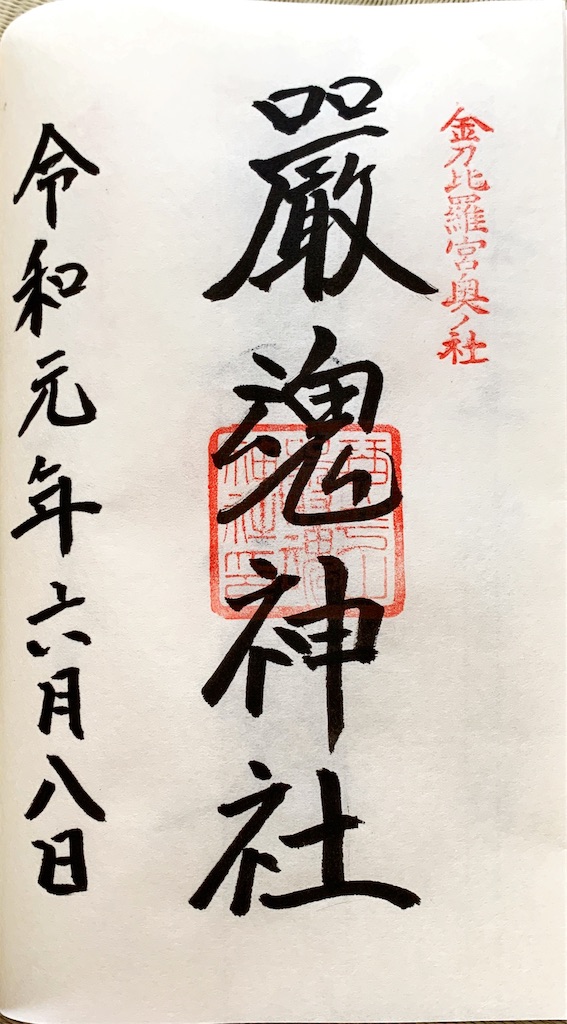 金刀比羅宮奥ノ社
嚴魂神社
令和元年六月八日